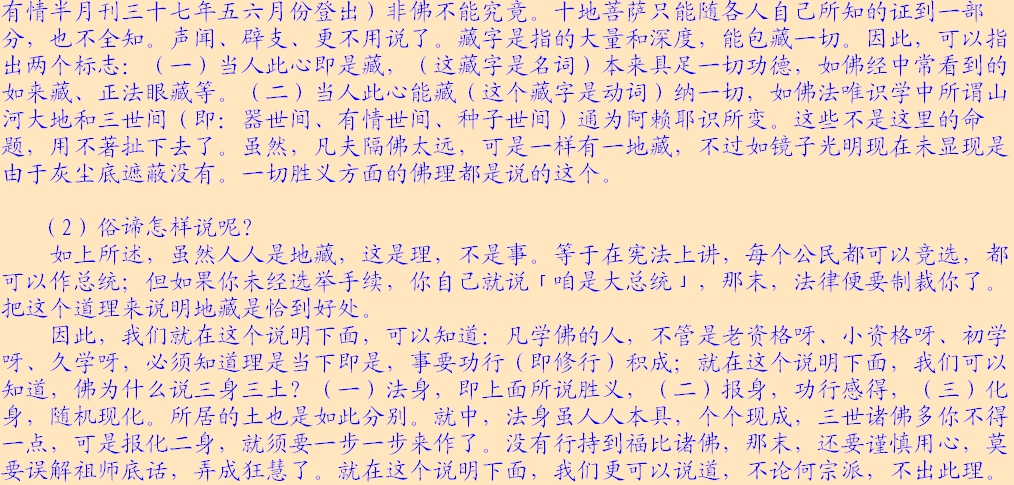 有情半月刊三十七年五六月份登出）非佛不能究竟。十地菩萨只能随各人自己所知的证到一部
分，也不全知。声闻、辟支、更不用说了。藏字是指的大量和深度，能包藏一切。因此，可以指
出两个标志：（一）当人此心即是藏，（这藏字是名词）本来具足一切功德，如佛经中常看到的
如来藏、正法眼藏等。（二）当人此心能藏（这个藏字是动词）纳一切，如佛法唯识学中所谓山
河大地和三世间（即：器世间、有情世间、种子世间）通为阿赖耶识所变。这些不是这里的命
题，用不著扯下去了。虽然，凡夫隔佛太远，可是一样有一地藏，不过如镜子光明现在未显现是
由于灰尘底遮蔽没有。一切胜义方面的佛理都是说的这个。
（2）俗谛怎样说呢？
如上所述，虽然人人是地藏，这是理，不是事。等于在宪法上讲，每个公民都可以竞选，都
可以作总统；但如果你未经选举手续，你自己就说「咱是大总统」，那末，法律便要制裁你了。
把这个道理来说明地藏是恰到好处。
因此，我们就在这个说明下面，可以知道：凡学佛的人，不管是老资格呀、小资格呀、初学
呀、久学呀，必须知道理是当下即是，事要功行（即修行）积成；就在这个说明下面，我们可以
知道，佛为什么说三身三土？（一）法身，即上面所说胜义，（二）报身，功行感得，（三）化
身，随机现化。所居的土也是如此分别。就中，法身虽人人本具，个个现成，三世诸佛多你不得
一点，可是报化二身，就须要一步一步来作了。没有行持到福比诸佛，那末，还要谨慎用心，莫
要误解祖师底话，弄成狂慧了。就在这个说明下面，我们更可以说道，不论何宗派，不出此理。